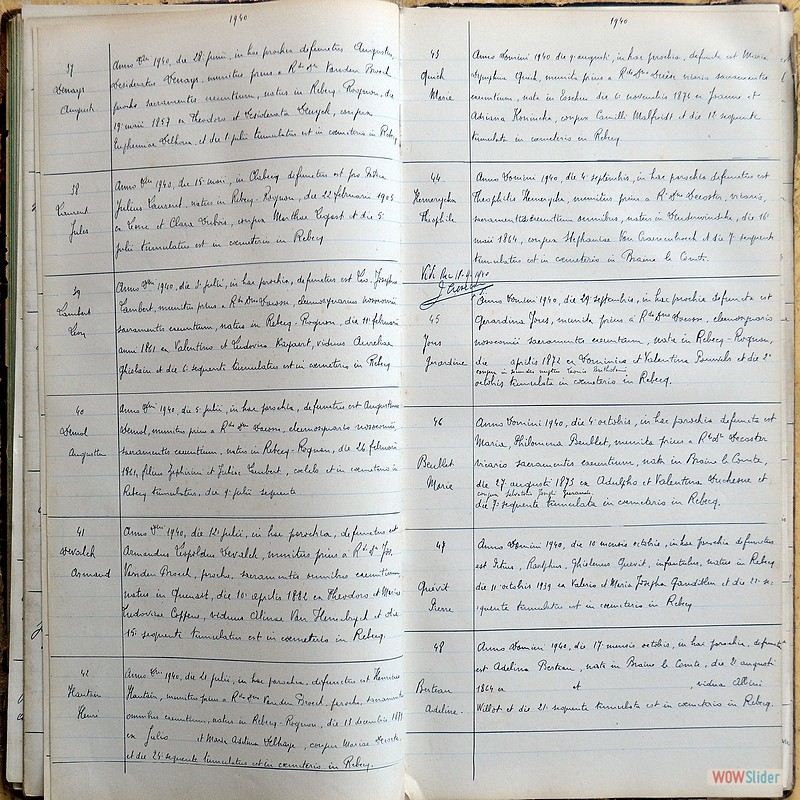 1940
37
Denays
August
Anno Dni 1940, die 28 junii, in hac parochia defunctus Augustus
Desideratus Denays, munitus prius a Rdo Dno Vanden Broeck
parocho sacramentis exeuntium, natus in Rebecq-Rognon, die
19 maii 1857 ex Theodoro et Desiderata
Delhove, et die 1 julii tumulatus est in coemeterio in Rebecq
38
Laurent
Jules
Anno Dni 1940, die 15 maii, in defunctus est pro Patria
Julius Laurent, natus in Rebecq-Rognon, die 22 februarii 1905
ex et Clara Dubois, conjux Marthae et die 5
julii tumulatus est in coemeterio in Rebecq
39
Lambert
Léon
Anno Dni 1940, die 3 julii, in hac parochia, defunctus est Leo, Josephus
Lambert, munitus prius a Rdo Dno Dosson, eleemosynarius nosocomii,
sacramentis exeuntium, natus in Rebecq-Rognon, die 11 februarii
anni 1861 ex Valentino et Ludovica viduus Aureliae
Ghislain et die 6 sequente tumulatus est in coemeterio in Rebecq
40
Demol
Augustin
Anno Dni 1940, die 5 julii, in hac parochia, defunctus est Augustinus
Demol, munitus prius a Rdo Dno Dosson, eleemosynario nosocomii,
sacramentis exeuntium, natus in Rebecq-Rognon, die 26 februarii
1861, filius Zephirini et Juliae Lambert, coelebs et in coemeterio in
Rebecq tumulatus, die 9 julii sequente
41
Devalck
Armand
Anno Dni 1940, die 12 julii, in hac parochia, defunctus est
Armandus Leopoldus Devalck, munitus prius a Rdo Dno Jos
Vanden Broeck, parocho, sacramentis omnibus exeuntium,
natus in Quenast, die 10 aprilis 1882 ex Theodoro et Maria
Ludovica Coppens, viduus Alinae Van et die
15 sequente tumulatus est in coemeterio in Rebecq.
42
Hautain
Henri
Anno Dni 1940, die 21 julii, in hac parochia, defunctus est Henricus
Hautain, munitus prius a Rdo Dno Vanden Broeck, parocho, sacramentis
omnibus exeuntium, natus in Rebecq-Rognon, die 13 decembris
ex Julio et Maria Adelina Delhaye, conjux Mariae
et die 24 sequente tumulatus est in coemeterio in Rebecq.
1940
43
Marie
Anno Domini 1940 die 9 augusti, in hac parochia, defuncta est Maria
Nymphea munita prius a Rdo Dno vicario sacramentis
exeuntium, nata in die 6 novembris 1876 ex Joanne et
Adriana conjux Camilli Malfroidt et die 12 sequente
tumulata in coemeterio in Rebecq.
44
Hemerijckx
Théophile
Anno Domini 1940, die 4 septembris, in hac parochia defunctus est
Theophilus Hemerijckx, munitus prius a Rdo Dno Decoster, vicario,
sacramentis exeuntium omnibus, natus in Denderwindeke, die 16
maii 1864, conjux Stephaniae Van Craenenbroeck et die 7 sequente
tumulatus est in coemeterio in Braine le Comte.
45
Jous
Gérardine
Anno Domini 1940, die 29 septembris, in hac parochia defuncta est
Gerardina Jous, munita prius a Rdo Dno Dosson, eleemosynario
nosocomii sacramentis exeuntium, nata in Rebecq-Rognon,
die aprilis 1872 ex Dominico et Valentina et die 2
conjux in secundis nuptiis
octobris tumulata in coemeterio in Rebecq.
46
Beullet
Marie
Anno Domini 1940, die 4 octobris, in hac parochia defuncta est
Maria, Philomena Beullet, munita prius a Rdo Dno Decoster
vicario sacramentis exeuntium, nata in Braine le Comte,
die 27 augusti 1873 ex Adulpho et Valentina Duchesne et
conjux Salvatoris Joseph
die 7 sequente tumulata in coemeterio in Rebecq.
47
Quévit
Pierre
Anno Domini 1940, die 10 mensis octobris, in hac parochia defunctus
est Petrus, Ghislenus Quévit, infantulus, natus in Rebecq
die 11 octobris 1939 ex Valerio et Maria Josepha et die 12 se-
quente tumulatus est in coemeterio in Rebecq
48
Berteau
Adeline.
Anno Domini 1940, die 17 mensis octobris, in hac parochia, defuncta
est Adelina Berteau, nata in Braine le Comte, die 2 augusti
1864 ex et , vidua Albini
Willot et die 21 sequente tumulata est in coemeterio in Rebecq.
WOWSlider